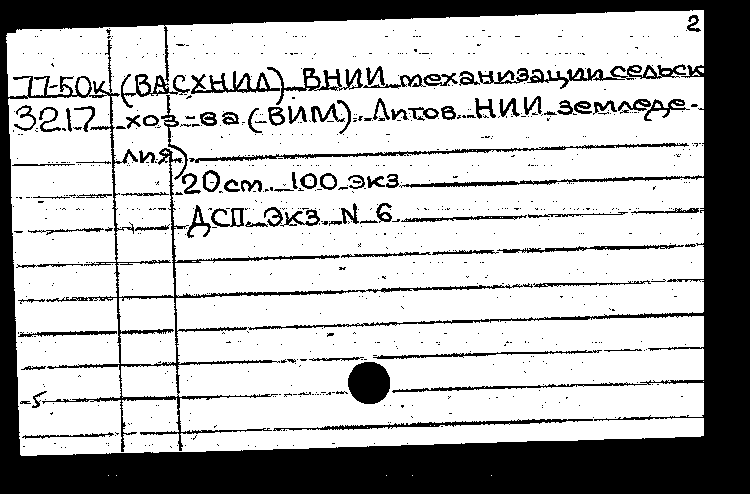 2
77-50к (ВАСХНИЛ) ВНИИ механизации сельск
3217 хоз-ва (ВИМ). Литов НИИ земледе-
лия).
20 cm 100 экз
ДСП экз N 6
5